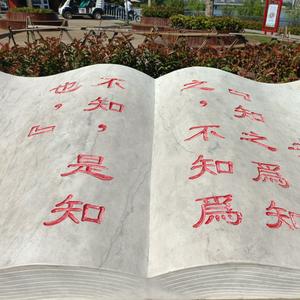 『知之為知
之，不知為
不知，是知
也，』